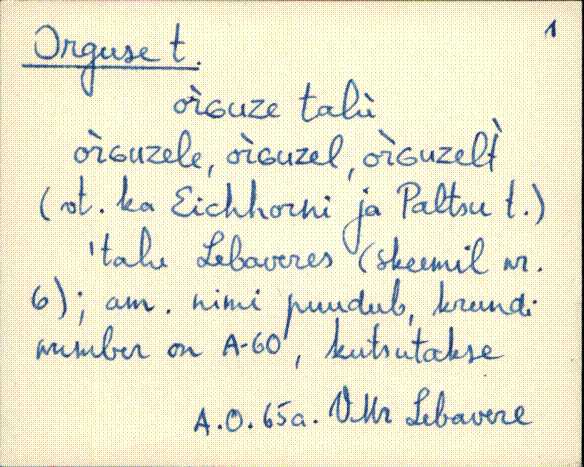 1
Orguse t.
òrGuze talù
òrGuzele, òrGuzel, òrGuzelt̀
(vt. ka Eichhorni ja Paltsu t.)
'talu Lebaveres (skeemil nr.
6); am. nimi puudub, krundi
number on A-60', kutsutakse
A.O. 65a. VMr Lebavere